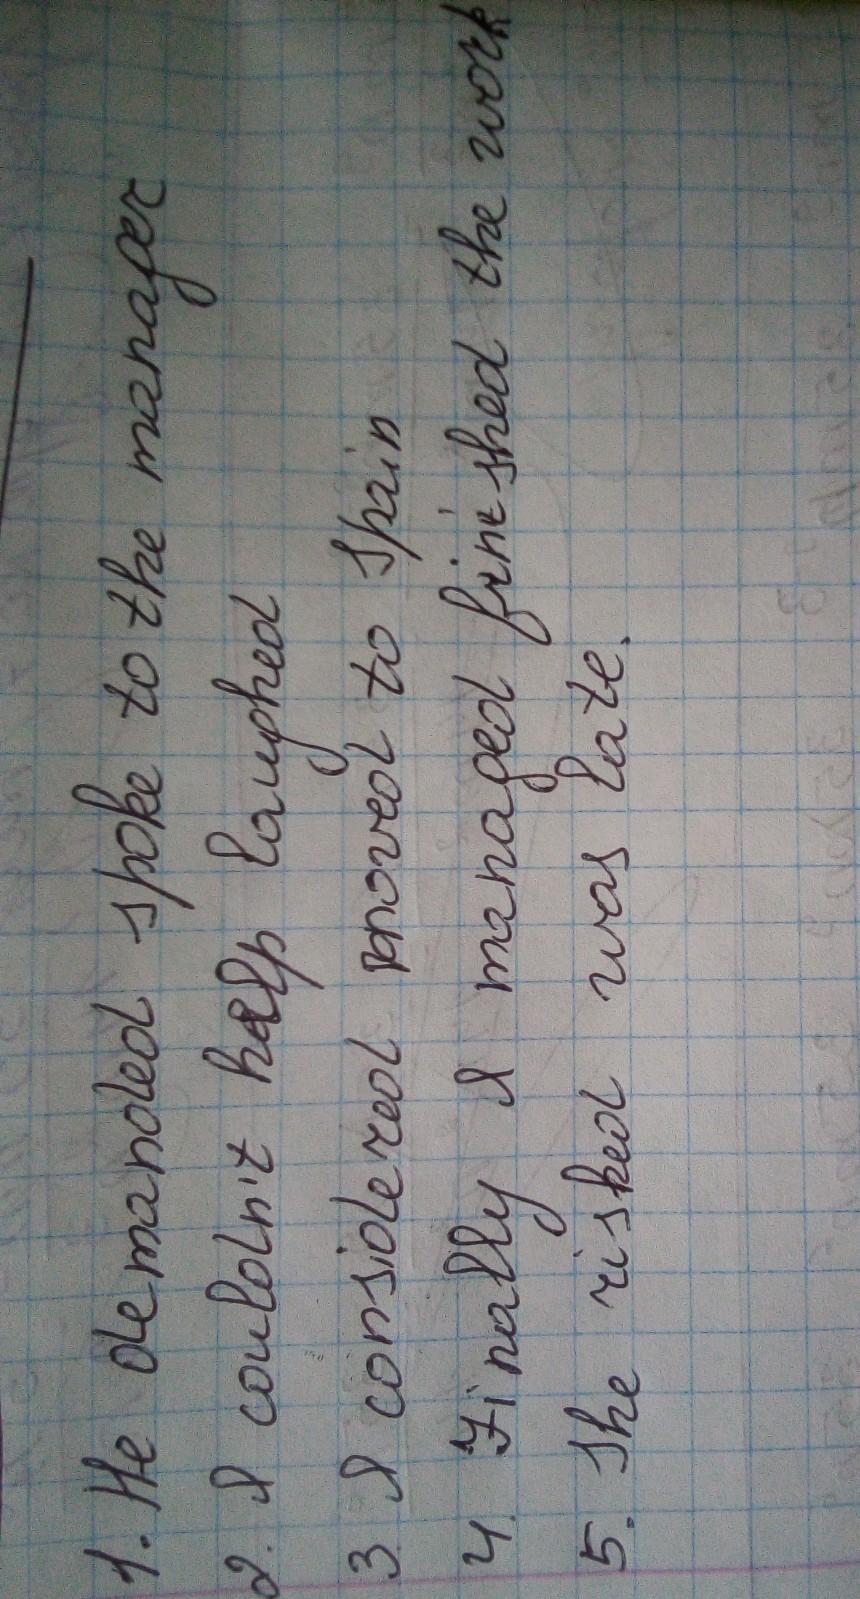 1. He demanded spoke to the manager
2. I couldn't help laughed
3. I considered moved to Spain
4. Finally I managed finished the work
5. She risked was late.